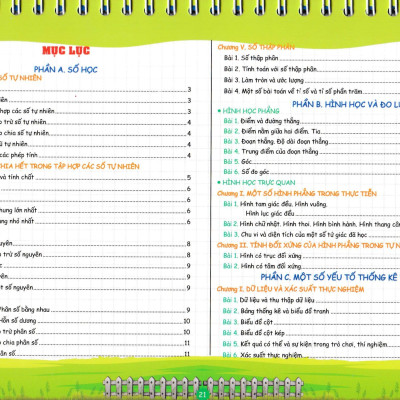 MỤC LỤC
PHẦN A. SỐ HỌC
SỐ TỰ NHIÊN
3
hợp các số tự nhiên 3
trừ số tự nhiên 3
chia số tự nhiên 4
tự nhiên 4
các phép tính 4
CHIA HẾT TRONG TẬP HỢP CÁC SỐ TỰ NHIÊN
và tính chất 5
6
6
chung lớn nhất 6
chung nhỏ nhất 6
nguyên 8
trừ số nguyên 8
8
nguyên 9
số nguyên 9
Phân số bằng nhau 9
Hỗn số dương 10
trừ phân số 10
chia phân số 11
phân số 11
Chương V. SỐ THẬP PHÂN
Bài 1. Số thập phân
Bài 2. Tính toán với số thập phân
Bài 3. Làm tròn và ước lượng
Bài 4. Một số bài toán về tỉ số và tỉ số phần trăm
PHẦN B. HÌNH HỌC VÀ ĐO
• HÌNH HỌC PHẲNG
Bài 1. Điểm và đường thẳng
Bài 2. Điểm nằm giữa hai điểm. Tia
Bài 3. Đoạn thẳng. Độ dài đoạn thẳng
Bài 4. Trung điểm của đoạn thẳng
Bài 5. Góc
Bài 6. Số đo góc
• HÌNH HỌC TRỰC QUAN
Chương I. MỘT SỐ HÌNH PHẲNG TRONG THỰC TIỄN
Bài 1. Hình tam giác đều. Hình vuông.
Hình lục giác đều
Bài 2. Hình chữ nhật. Hình thoi. Hình bình hành. Hình thang
Bài 3. Chu vi và diện tích của một số tứ giác đã học
Chương II. TÍNH ĐỐI XỨNG CỦA HÌNH PHẲNG TRONG TỰ
Bài 1. Hình có trục đối xứng
Bài 2. Hình có tâm đối xứng
PHẦN C. MỘT SỐ YẾU TỐ THỐNG KÊ
Chương I. DỮ LIỆU VÀ XÁC SUẤT THỰC NGHIỆM
Bài 1. Dữ liệu và thu thập dữ liệu
Bài 2. Bảng thống kê và biểu đồ tranh
Bài 3. Biểu đồ cột
Bài 4. Biểu đồ cột kép
Bài 5. Kết quả có thể và sự kiện trong trò chơi, thí nghiệm
Bài 6. Xác suất thực nghiệm
21